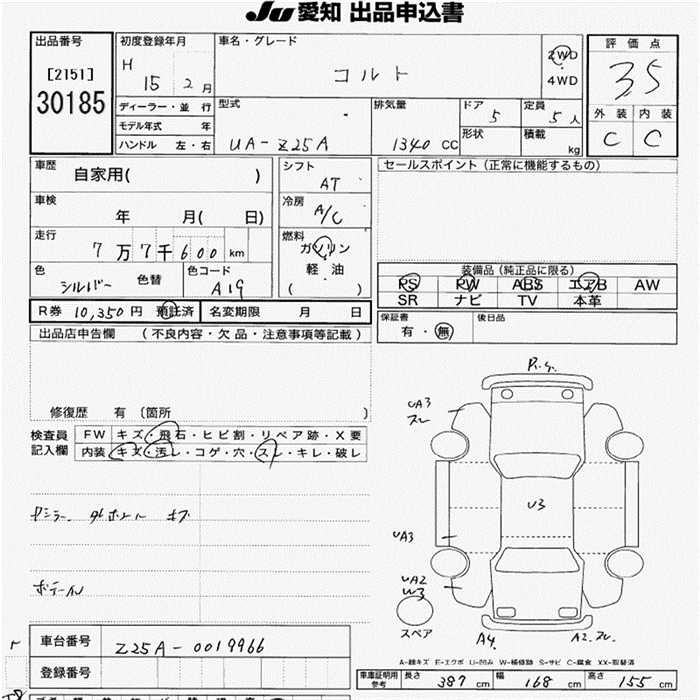 Ju 愛知 出品申込書
出品番号
[2151]
30185
初度登録年月
H 15 2 月
車名・グレード
コルト
2WD
4WD
評価点
3.5
外装 内装
C C
ディーラー・並 行
モデル年式 年
ハンドル 左・右
型式
UA-Z25A
排気量
1340 CC
ドア
5
形状
定員
5 人
積載
kg
車歴
自家用( )
シフト
AT
セールスポイント (正常に機能するもの)
車検
年 月( 日)
冷房
A/C
走行
7 万 7 千 600 km
燃料
ガソリン
軽 油
( )
色
シルバー
色替
色コード
A19
装備品 (純正品に限る)
PS PW ABS エアB AW
SR ナビ TV 本革
R券 10,350 円 預託済
名変期限 月 日
保証書
有・無
後日品
出品店申告欄 (不良内容・欠品・注意事項等記載)
修復歴 有 〔箇所 〕
検査員
記入欄
FW キズ・飛石・ヒビ割・リペア跡・X要
内装 キズ・汚レ・コゲ・穴・スレ・キレ・破レ
UA3
スレ
U3
UA3
UA2
W3
スペア
A4
A2.スレ
車台番号
Z25A-0019966
登録番号
A-線キズ E-エクボ U-凹み W-補修跡 S-サビ C-腐食 XX-取替済
車庫証明用
参考
長さ 387 cm
幅 168 cm
高さ 155 cm